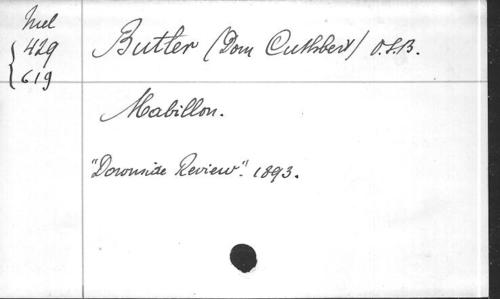 Mel
429
619
Butler (Dom Cuthbert) O.S.B.
Mabillon.
"Downside Review". 1893.